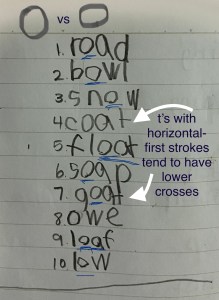 O vs O
1. road
2. bowl
3. snow
4 coat
5 float
6. soap
7. goat
8 owe
9. loaf
10 low
t's with
horizontal-
first strokes
tend to have
lower
crosses